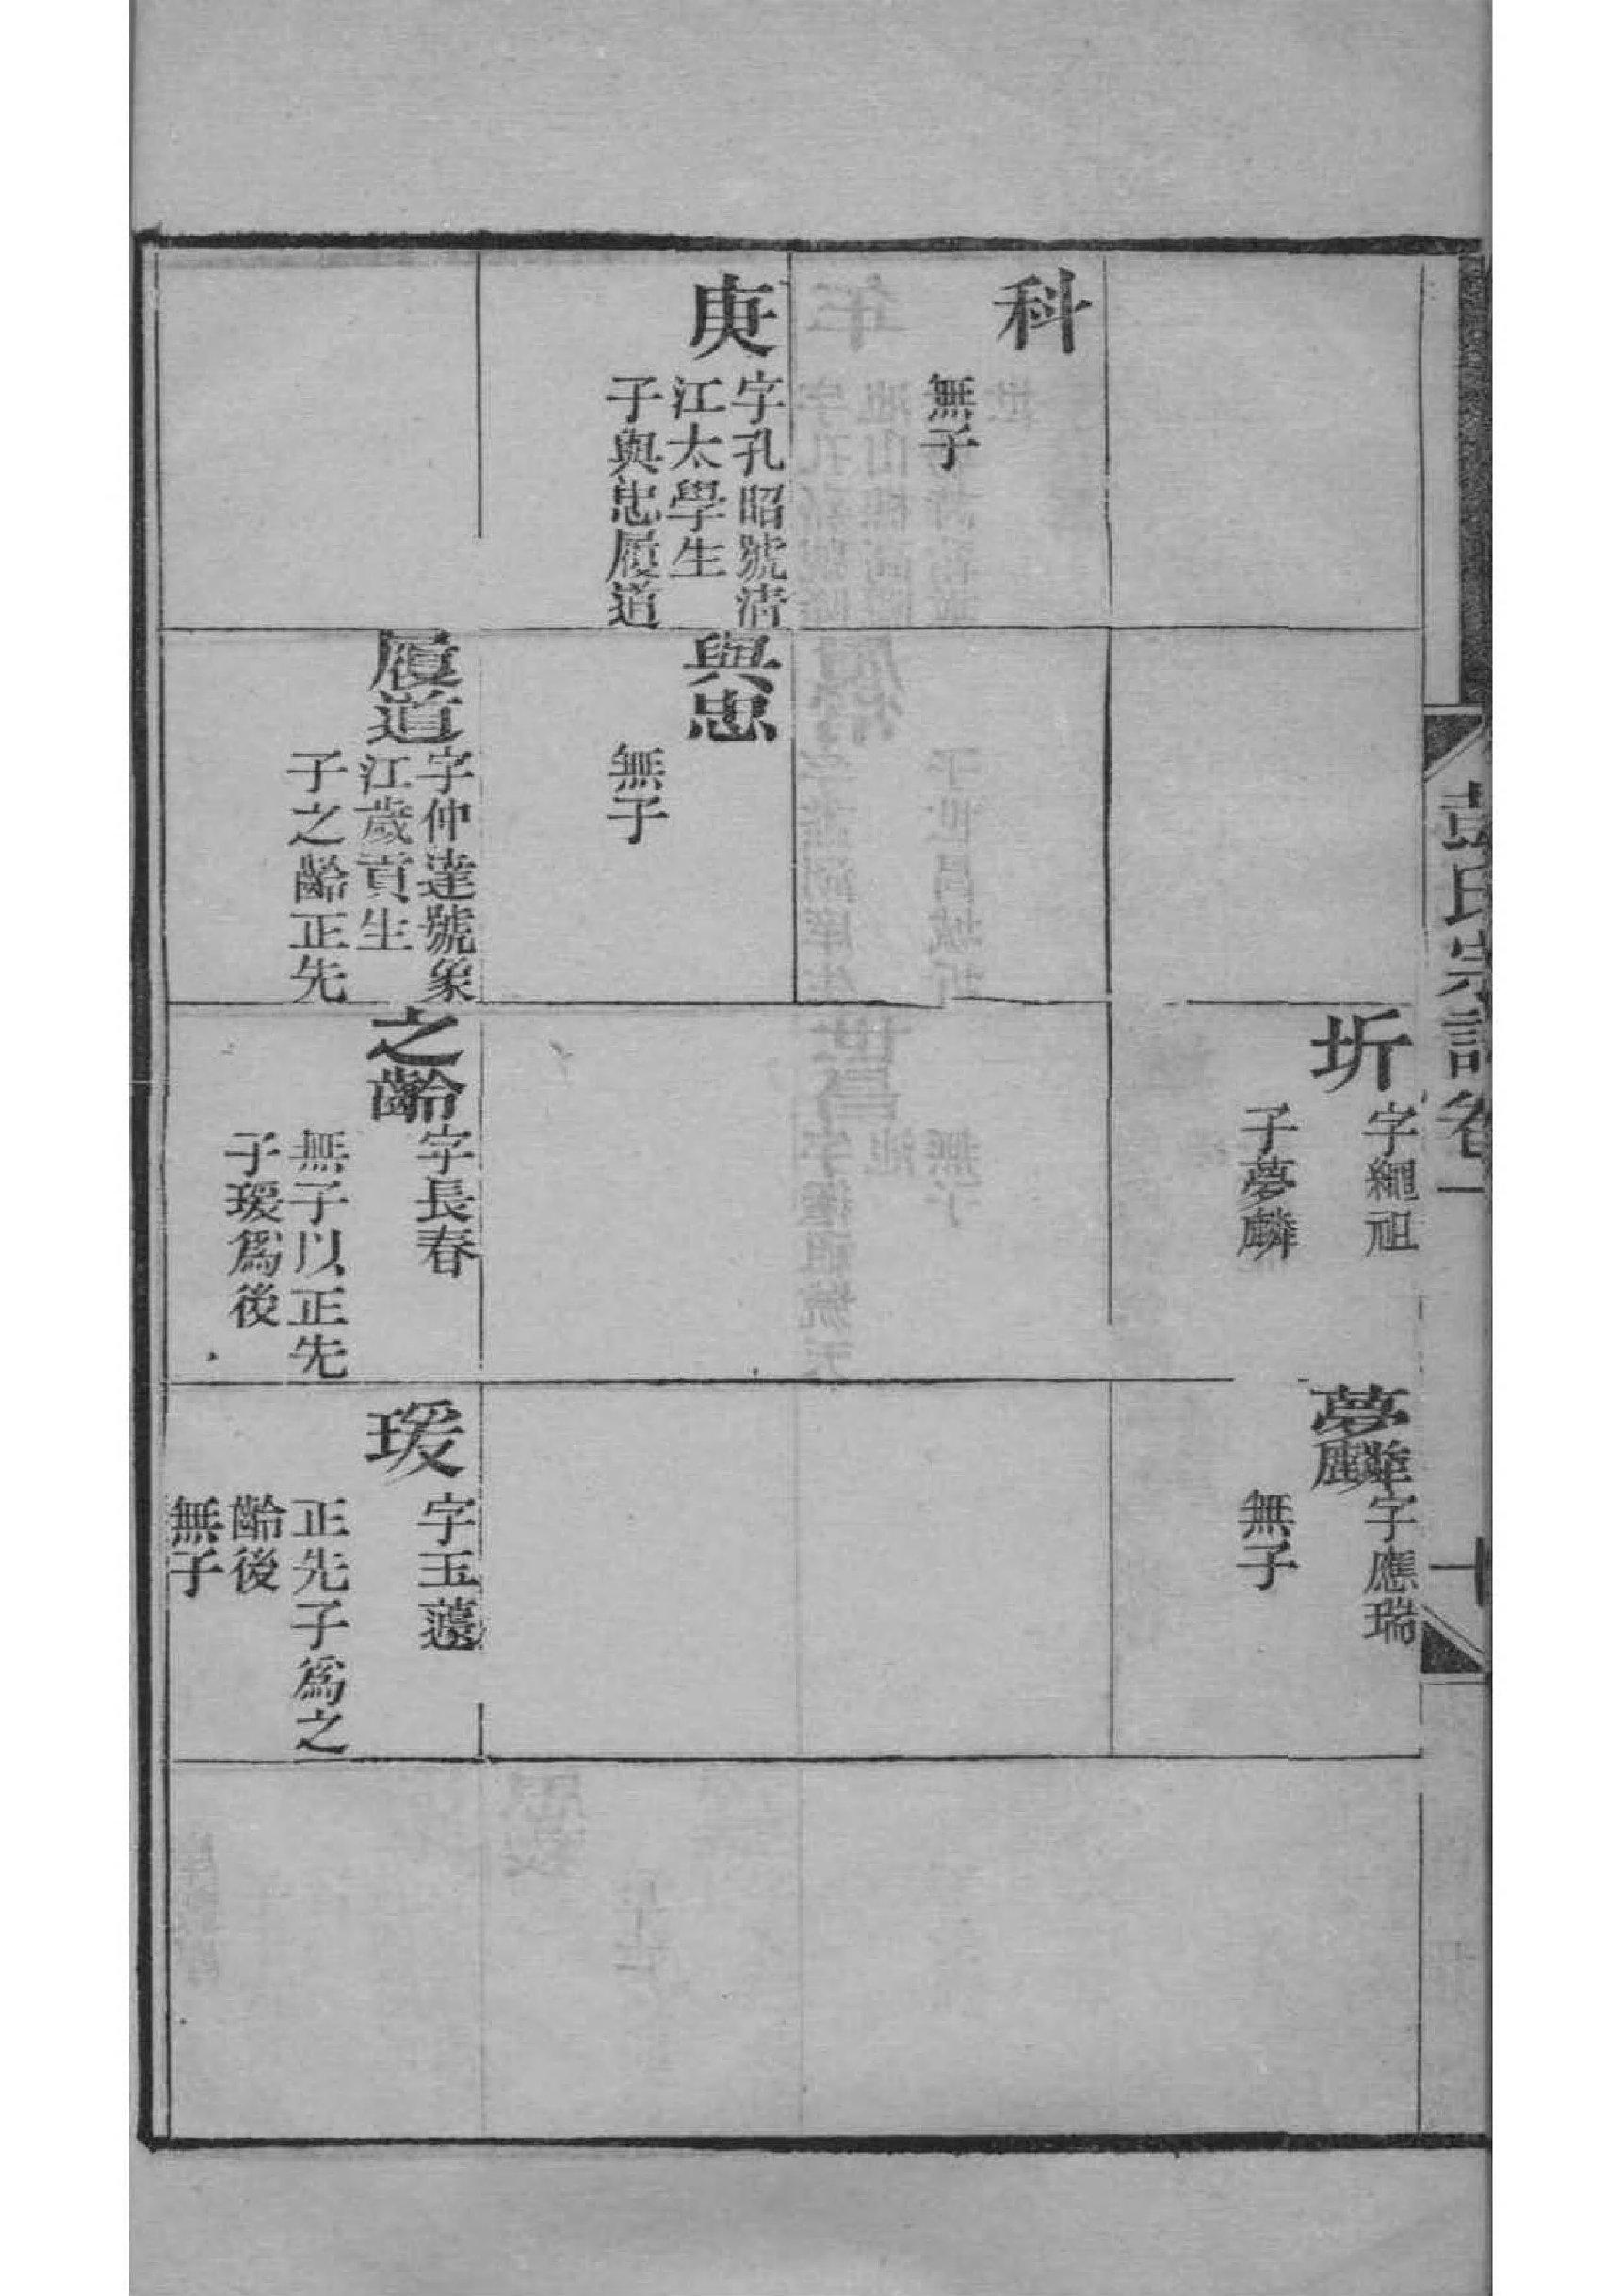 彭氏宗譜卷一
十
圻
字繩祖
子夢麟
夢麟
字應瑞
無子
科
無子
庚
字孔昭號淸
江太學生
子與忠履道
與忠
無子
履道
字仲達號象
江歲貢生
子之齡正先
之齡
字長春
無子以正先
子瑗爲後
瑗
字玉薳
正先子爲之
齡後
無子